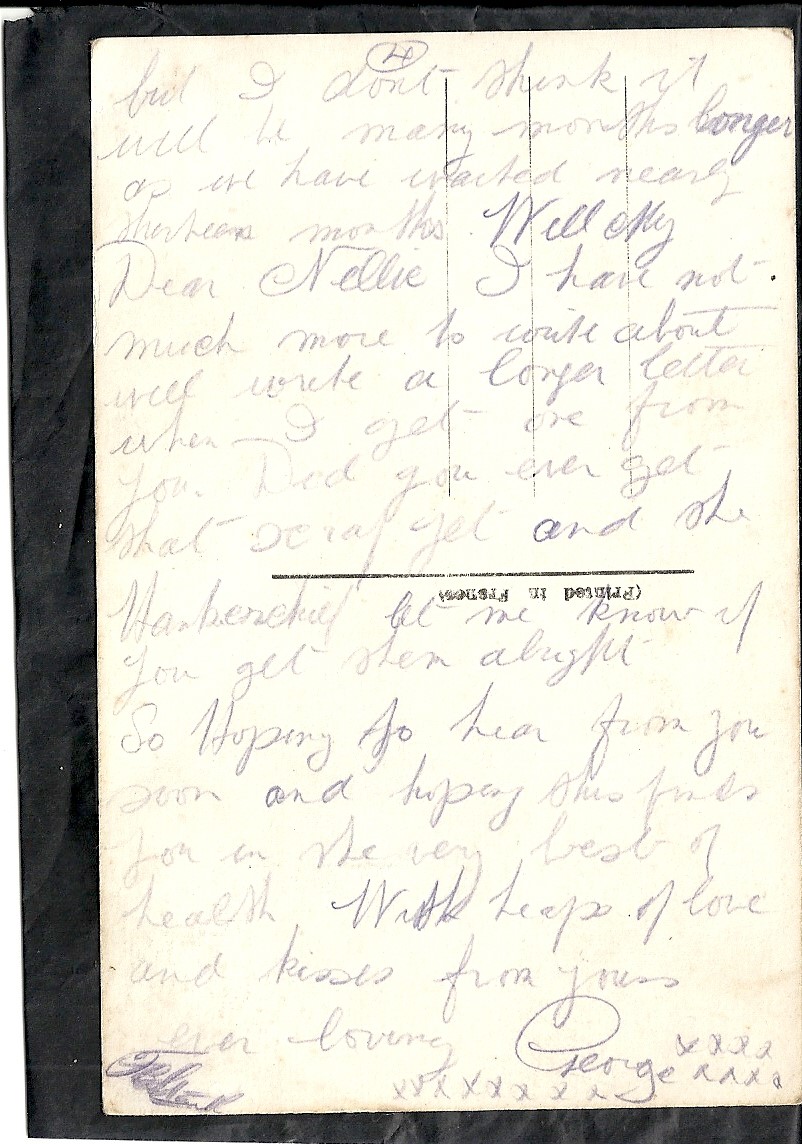 4
but I dont think it
will be many months longer
as we have waited nearly
thirteen months. Well My
Dear Nellie I have not
much more to write about
will write a longer letter
when I get one from
you. Did you ever get
that scraf yet and the
(Printed in France)
Hankerchief let me know if
you get them alright
So Hoping to hear from you
soon and hoping this finds
you in the very best of
health With heaps of love
and kisses from yours
ever loving George xxxx
xxxxxxxx xxxx